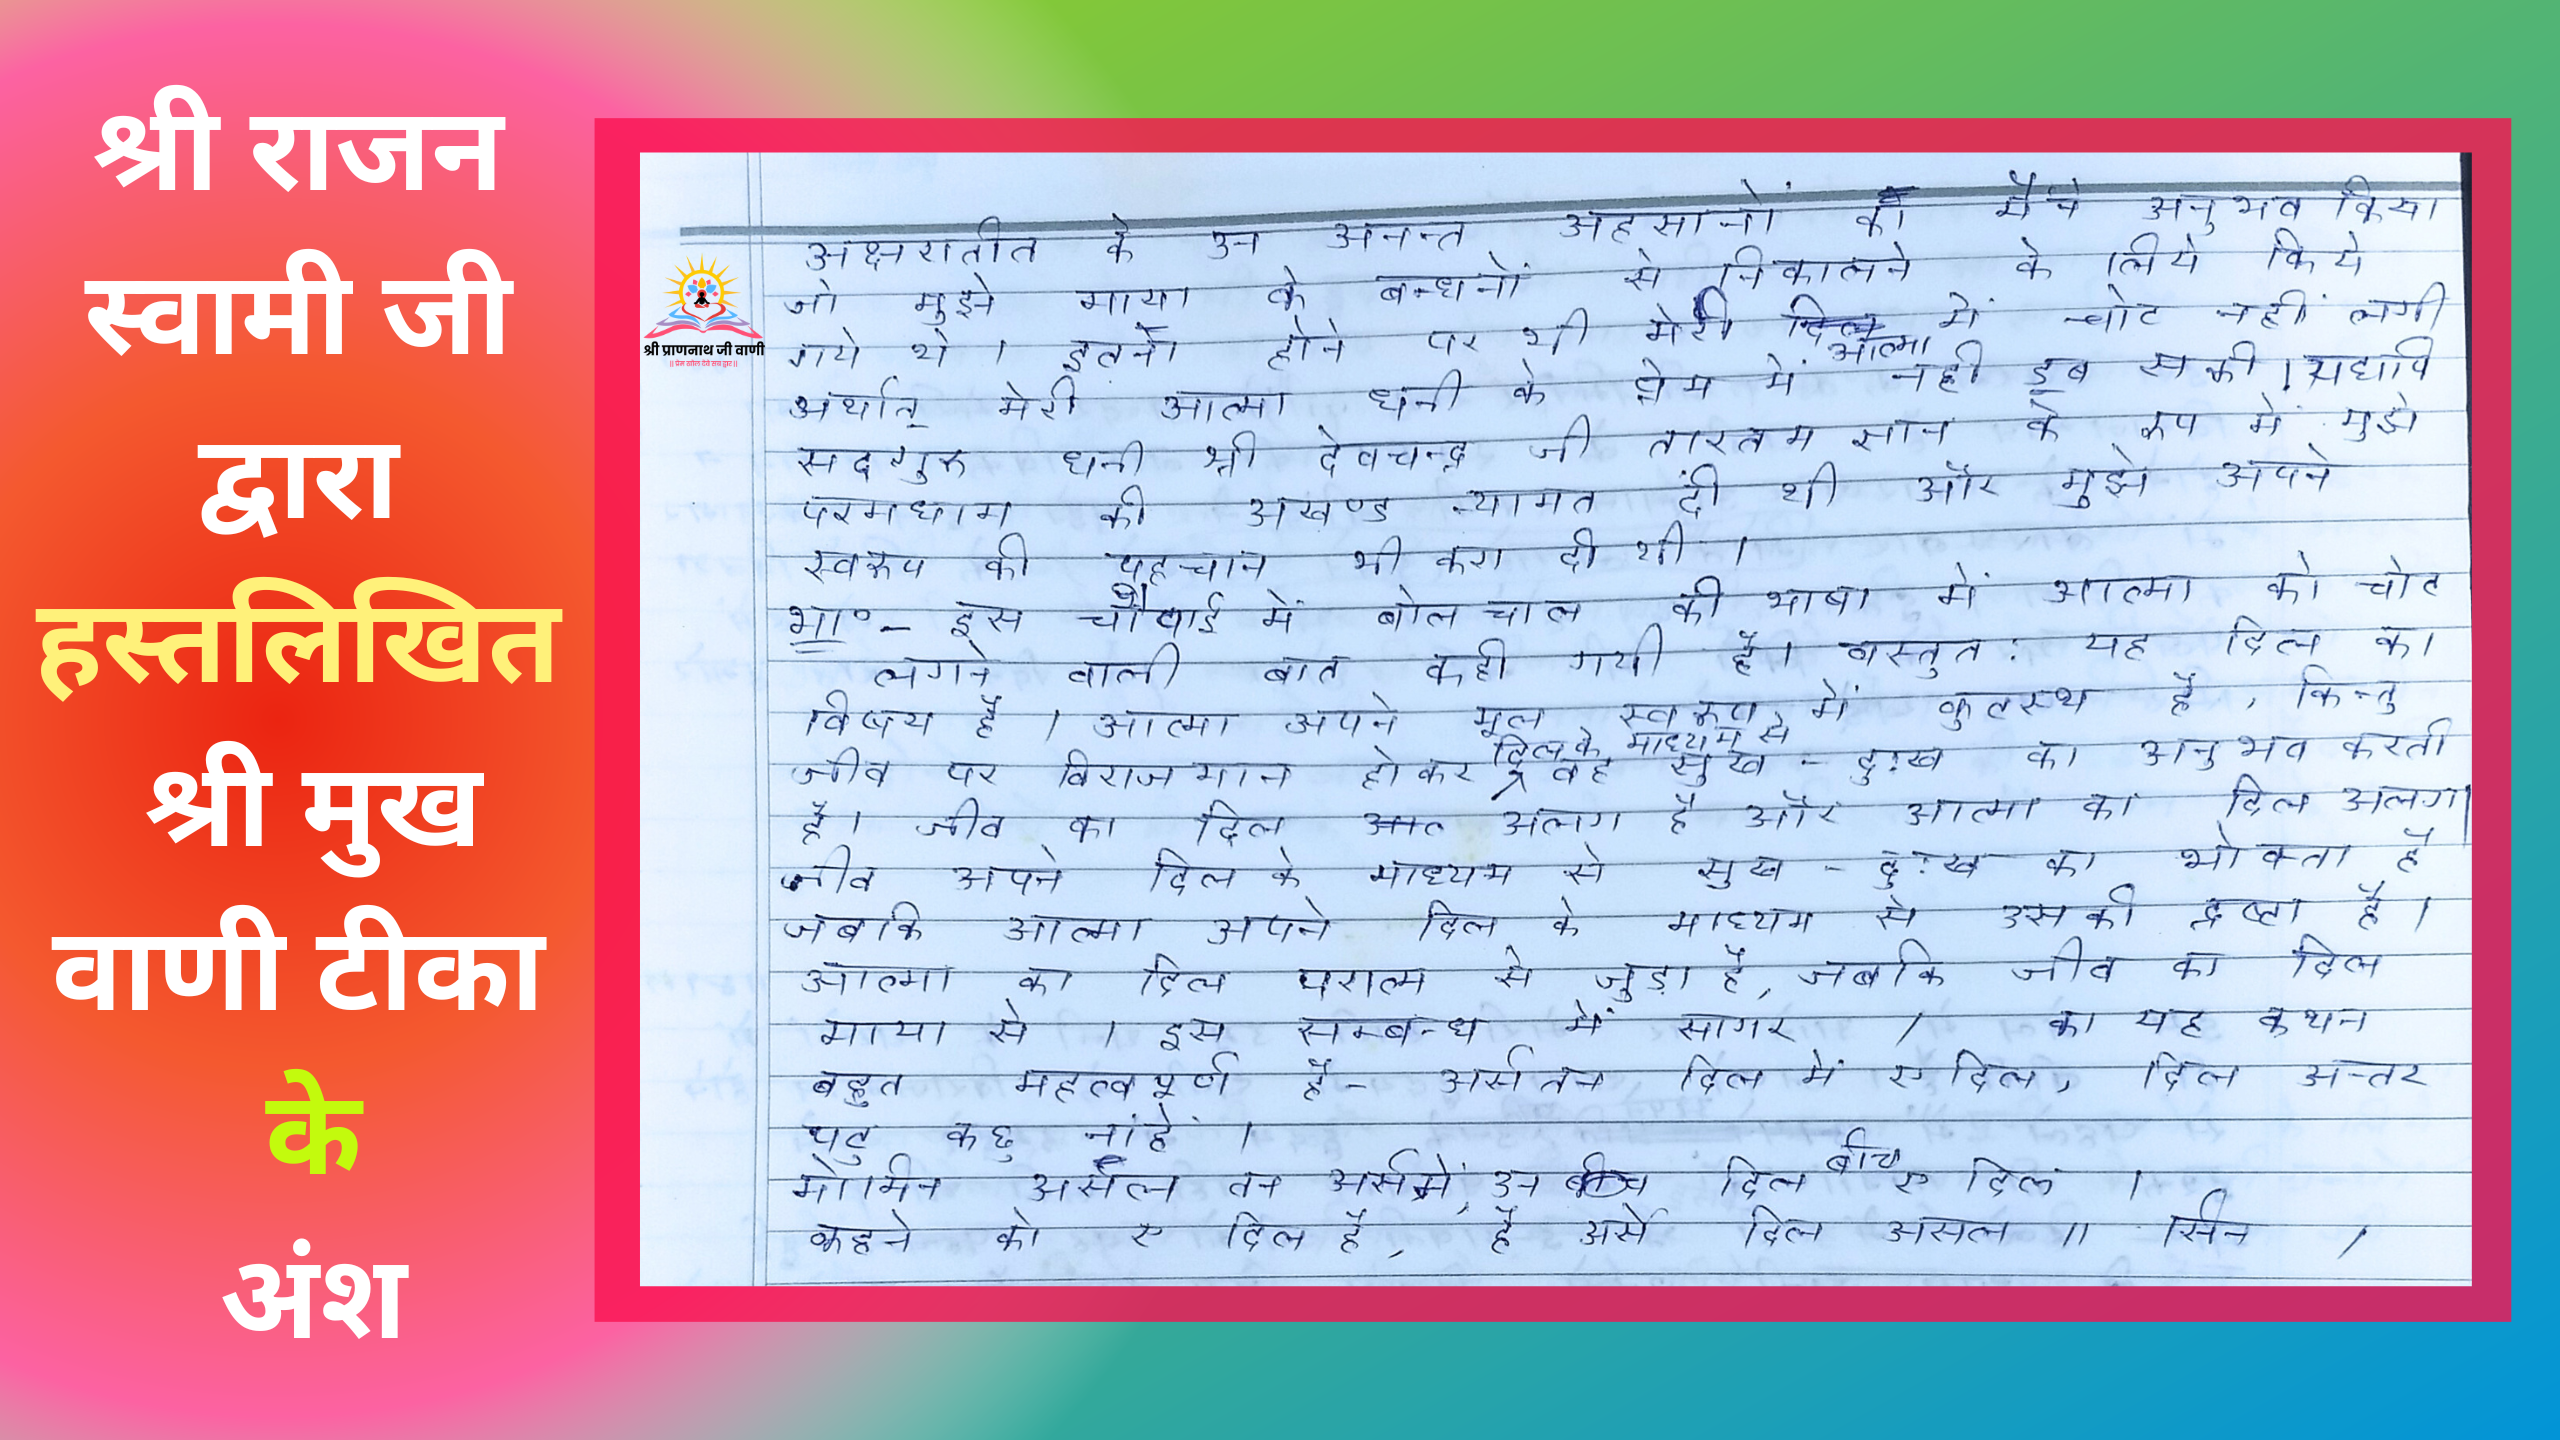 श्री राजन
स्वामी जी
द्वारा
हस्तलिखित
श्री मुख
वाणी टीका
के
अंश
श्री प्राणनाथ जी वाणी
अक्षरातीत के उन अनन्त अहसानों को मैंने अनुभव किया
जो मुझे माया के बन्धनों से निकालने के लिये किये
गये थे । इतने होने पर भी मेरी आत्मा में चोट नहीं लगी
अर्थात् मेरी आत्मा धनी के प्रेम में नहीं डूब सकी । यद्यपि
सदगुरु धनी श्री देवचन्द्र जी तारतम ज्ञान के रूप में मुझे
परमधाम की अखण्ड न्यामत दी थी और मुझे अपने
स्वरूप की पहचान भी करा दी थी ।
भा॰ – इस चौपाई में बोल चाल की भाषा में आत्मा को चोट
लगने वाली बात कही गयी है । वस्तुत: यह दिल का
विषय है । आत्मा अपने मूल स्वरूप में कुटस्थ है , किन्तु
जीव पर विराजमान होकर दिल के माध्यम से वह सुख - दु:ख का अनुभव करती
है । जीव का दिल अलग है और आत्मा का दिल अलग ।
जीव अपने दिल के माध्यम से सुख - दु:ख का भोक्ता है
जबकि आत्मा अपने दिल के माध्यम से उसकी द्रष्टा है ।
आत्मा का दिल परात्म से जुड़ा है, जबकि जीव का दिल
माया से । इस सम्बन्ध में सागर / का यह कथन
बहुत महत्वपूर्ण है - अर्स तन दिल में ए दिल, दिल अन्तर
पट कछु नांहें ।
मोमिन असल तन अर्स में, उन दिल बीच ए दिल ।
कहने को ए दिल है, है अर्से दिल असल ॥ सिन /